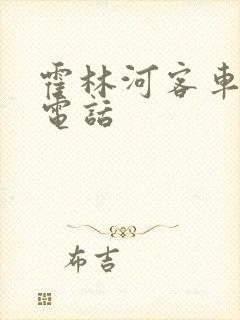 霍林河客車
電話
布吉